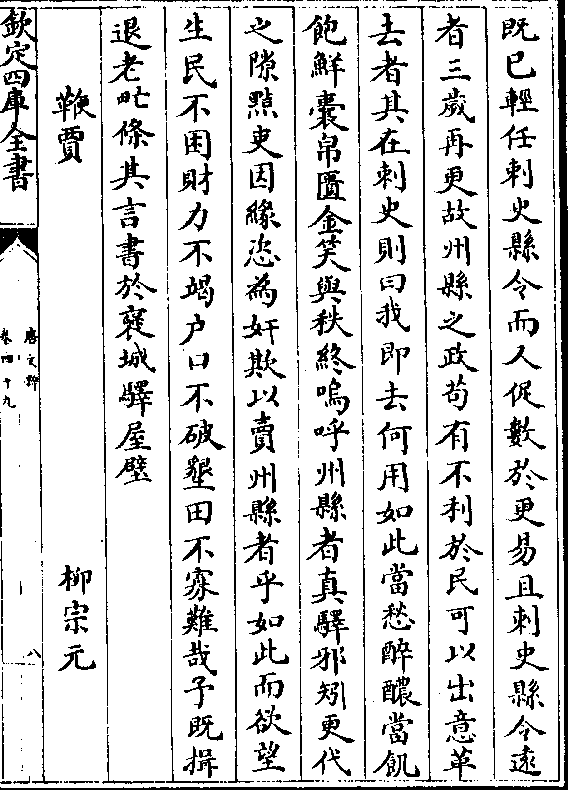 既已輕任刺史縣令而人促數於更易且刺史縣令遠
者三歲再更故州縣之政苟有不利於民可以出意革
去者其在刺史則曰我即去何用如此當愁醉醲當飢
飽鮮囊帛匱金笑與秩終嗚呼州縣者真驛邪矧更代
之隙黠吏因緣恣為奸欺以賣州縣者乎如此而欲望
生民不困財力不竭户口不破墾田不寡難哉予既揖
退老甿條其言書於襃城驛屋壁
鞭賈 柳宗元
欽定四庫全書
唐文粹
卷四十九
八